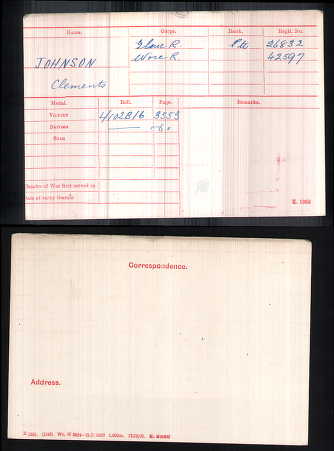 Name. Corps. Rank. Regtl. No.
JOHNSON Glouc R. Pte 26832
Clements Worc R. 42597
Medal. Roll. Page. Remarks.
Victory 4/102B16 3353
British — do —
Star
Theatre of War first served in
Date of entry therein
K. 1380
Correspondence.
Address.